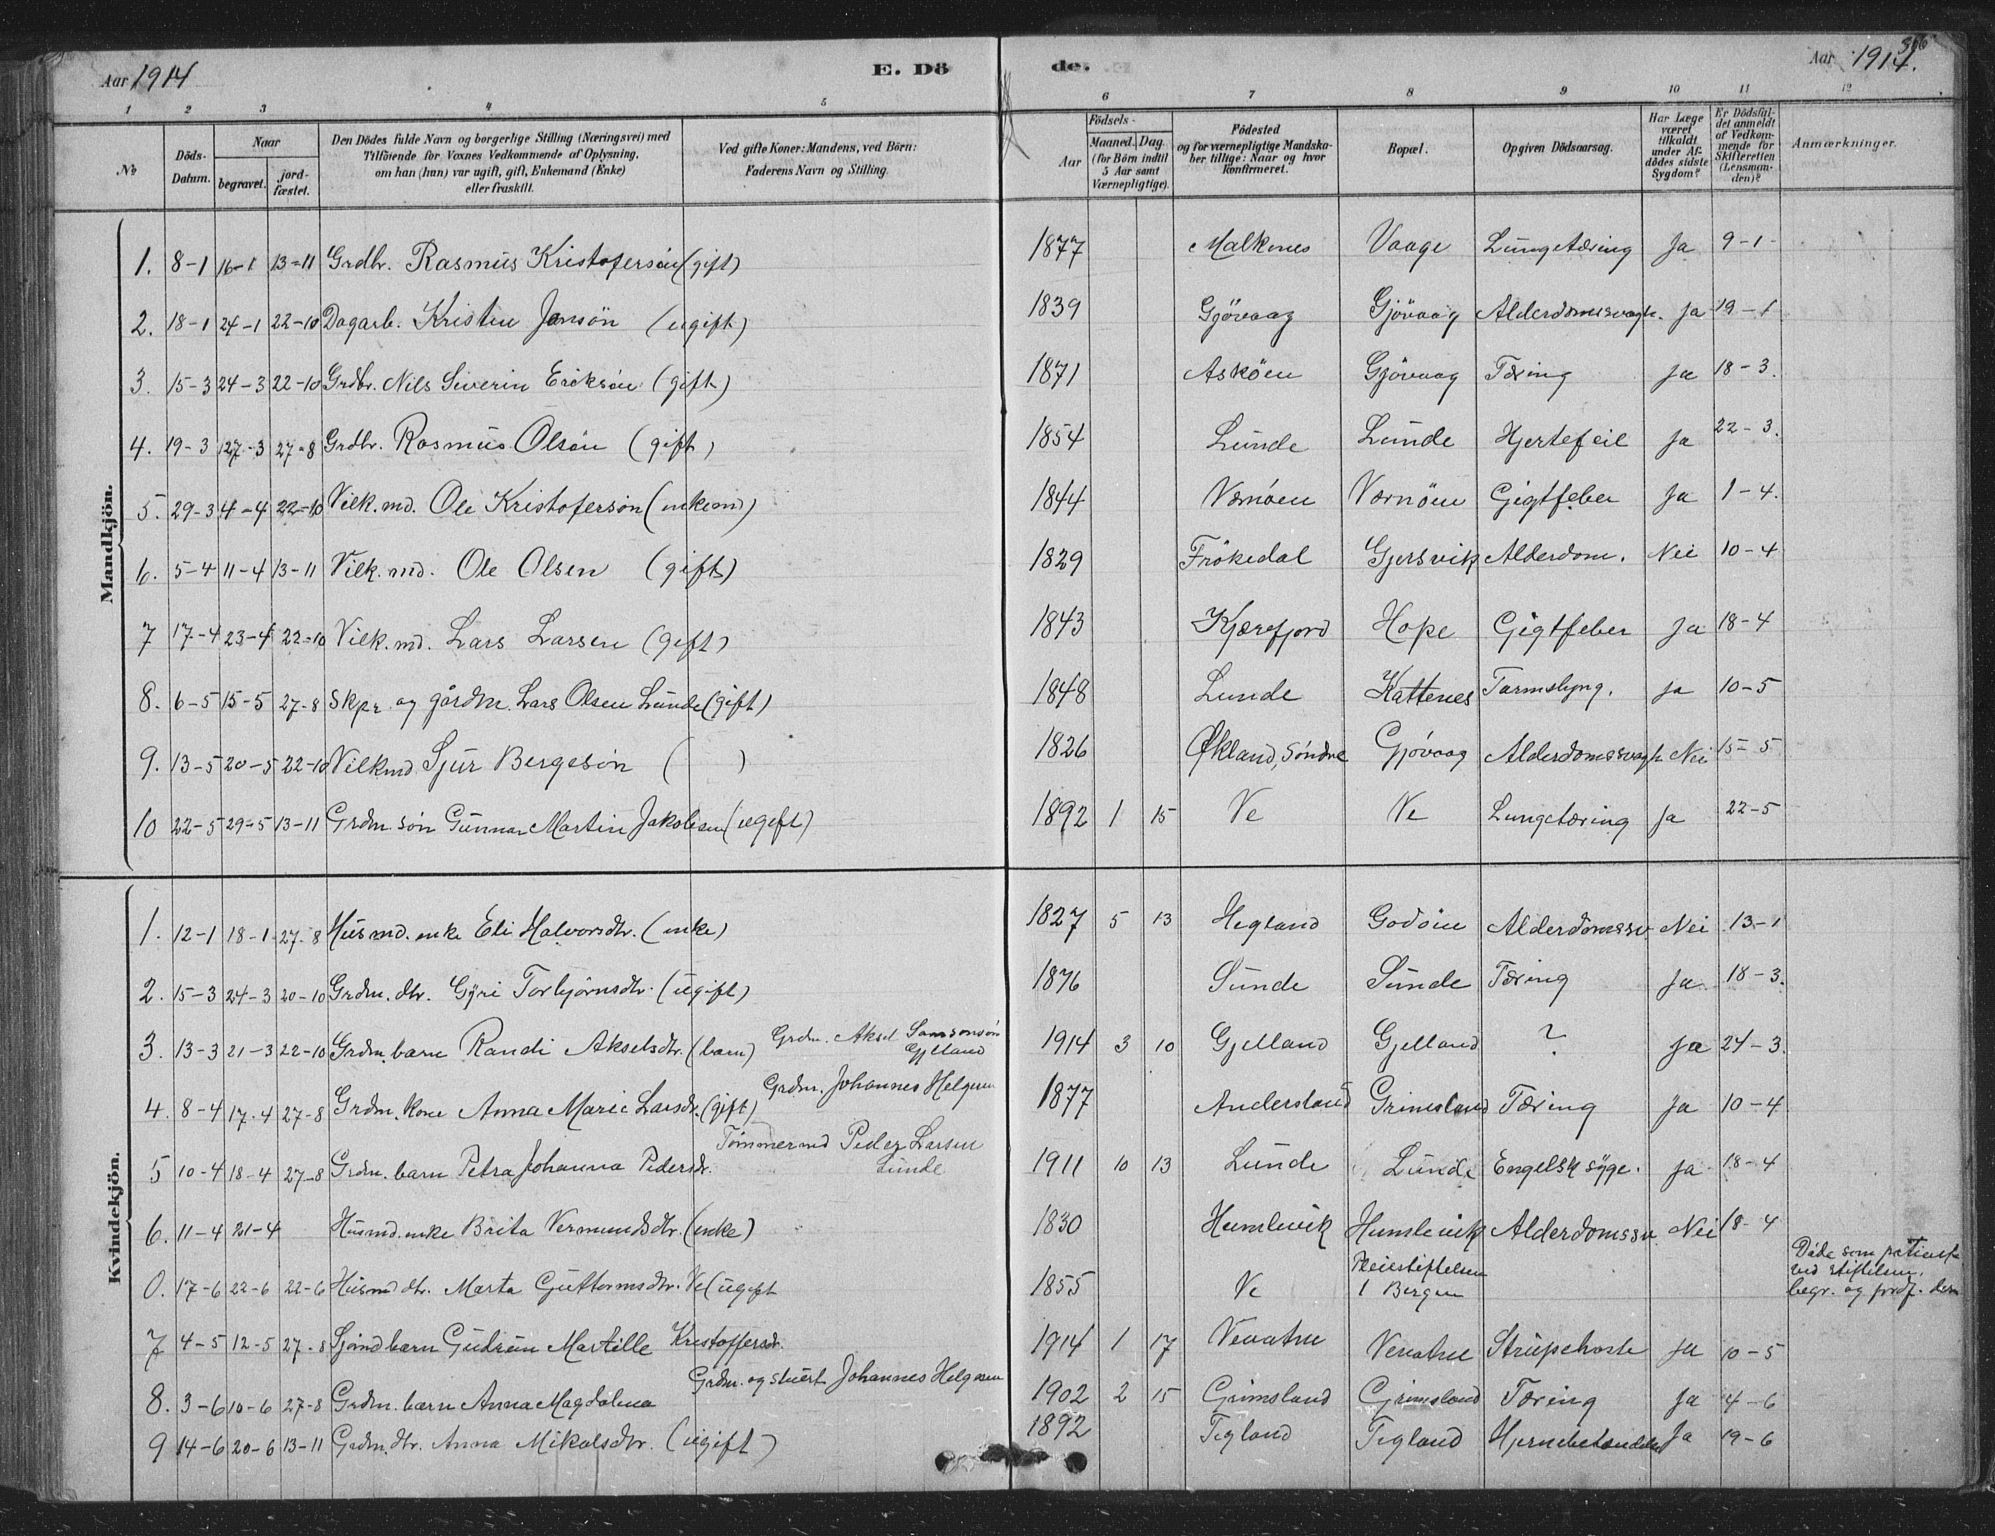 Aar 1914 E. Döde. Aar 1914.
1 2 3 4 5 6 7 8 9 10 11 12
No Döds-Datum. Naar begravet. jord-fæstet. Den Dödes fulde Navn og borgerlige Stilling (Næringsvei) med Tilföiende for Voxnes Vedkommende af Oplysning, om han (hun) var ugift, gift, Enkemand (Enke) eller fraskilt. Ved gifte Koner: Mandens, ved Börn: Faderens Navn og Stilling. Födsels- Aar Maaned. Dag. (for Börn indtil 5 Aar samt Værnepligtige). Födested og for værnepligtige Mandskaber tillige: Naar og hvor konfirmeret. Bopæl. Opgiven Dödsaarsag. Har Læge været tilkaldt under Afdödes sidste Sygdom? Er Dödsfaldet anmeldt af Vedkommende for Skifteretten (Lensmanden)? Anmærkninger.
Mandkjön.
1. 8-1 16-1 13-11 Grdbr. Rasmus Kristofersön (gift) 1877 Malkenes Vaage Lungetæring Ja 9-1
2. 18-1 24-1 22-10 Dagarb. Kristen Jansön (ugift) 1839 Gjövaag Gjövaag Alderdomssvagh. Ja 19-1
3. 15-3 24-3 22-10 Grdbr. Nils Severin Eriksön (gift) 1871 Asköen Gjövaag Tæring Ja 18-3.
4. 19-3 27-3 27-8 Grdbr. Rasmus Olsön (gift) 1854 Lunde Lunde Hjertefeil Ja 22-3.
5. 29-3 4-4 22-10 Vilk.md. Ole Kristofersön (enkemd) 1844 Værnöen Værnöen Gigtfeber Ja 1-4.
6. 5-4 11-4 13-11 Vilk.md. Ole Olsen (gift) 1829 Frökedal Gjersvik Alderdom. Nei 10-4
7 17-4 23-4 22-10 Vilk.md. Lars Larsen (gift) 1843 Kjærefjord Hope Gigtfeber Ja 18-4
8. 6-5 15-5 27-8 Skpr. og gårdm. Lars Olsen Lunde (gift) 1848 Lunde Kattenes Tarmslyng. Ja 10-5
9. 13-5 20-5 22-10 Vilkmd Sjur Bergesön ( ) 1826 Økland, Söndre Gjövaag Alderdomssvagh Nei 15-5
10 22-5 29-5 13-11 Grdm. sön Gunnar Martin Jakobsen (ugift) 1892 1 15 Ve Ve Lungetæring Ja 22-5
Kvindekjön.
1. 12-1 18-1 27-8 Husmd. enke Eli Halvorsdtr. (enke) 1827 5 13 Hegland Godöen Alderdomssv. Nei 13-1
2. 15-3 24-3 20-10 Grdm. dtr. Gyri Torbjörnsdtr. (ugift) 1876 Sunde Sunde Tæring Ja 18-3.
3. 13-3 21-3 22-10 Grdm. barn Randi Akselsdtr. (barn) Grdm. Aksel Samsonsön Gjelland 1914 3 10 Gjelland Gjelland ? Ja 24-3.
4. 8-4 17-4 27-8 Grdm. kone Anna Marie Larsdr. (gift) Grdm. Johannes Helgesen 1877 Andersland Grimsland Tæring Ja 10-4
5 10-4 18-4 27-8 Grdm. barn Petra Johanna Pedersdr. Tömmermd Peder Larsen Lunde 1911 10 13 Lunde Lunde Engelsk syge. Ja 18-4
6. 11-4 21-4 Husmd. enke Brita Vermundsdtr. (enke) 1830 Humlevik Humlevik Alderdomssv. Nei 18-4
0. 17-6 22-6 22-6 Husmd dtr. Marta Guttormsdtr. Ve (ugift 1855 Ve Pleiestiftelsen i Bergen Döde som patient ved stiftelsen. begr. og jordf. der
7 4-5 12-5 27-8 Sjömd barn Gudrun Martille Kristoffersdr. 1914 1 17 Venatræ Venatræ Strupehoste Ja 10-5
8. 3-6 10-6 27-8 Grdm. barn Anna Magdalena Grdm. og stuert Johannes Helgesen 1902 2 15 Grimsland Grimsland Tæring Ja 4-6
9 14-6 20-6 13-11 Grdm. dtr. Anna Mikalsdtr. (ugift) 1892 Tegland Tegland Hjernebetændelse Ja 19-6